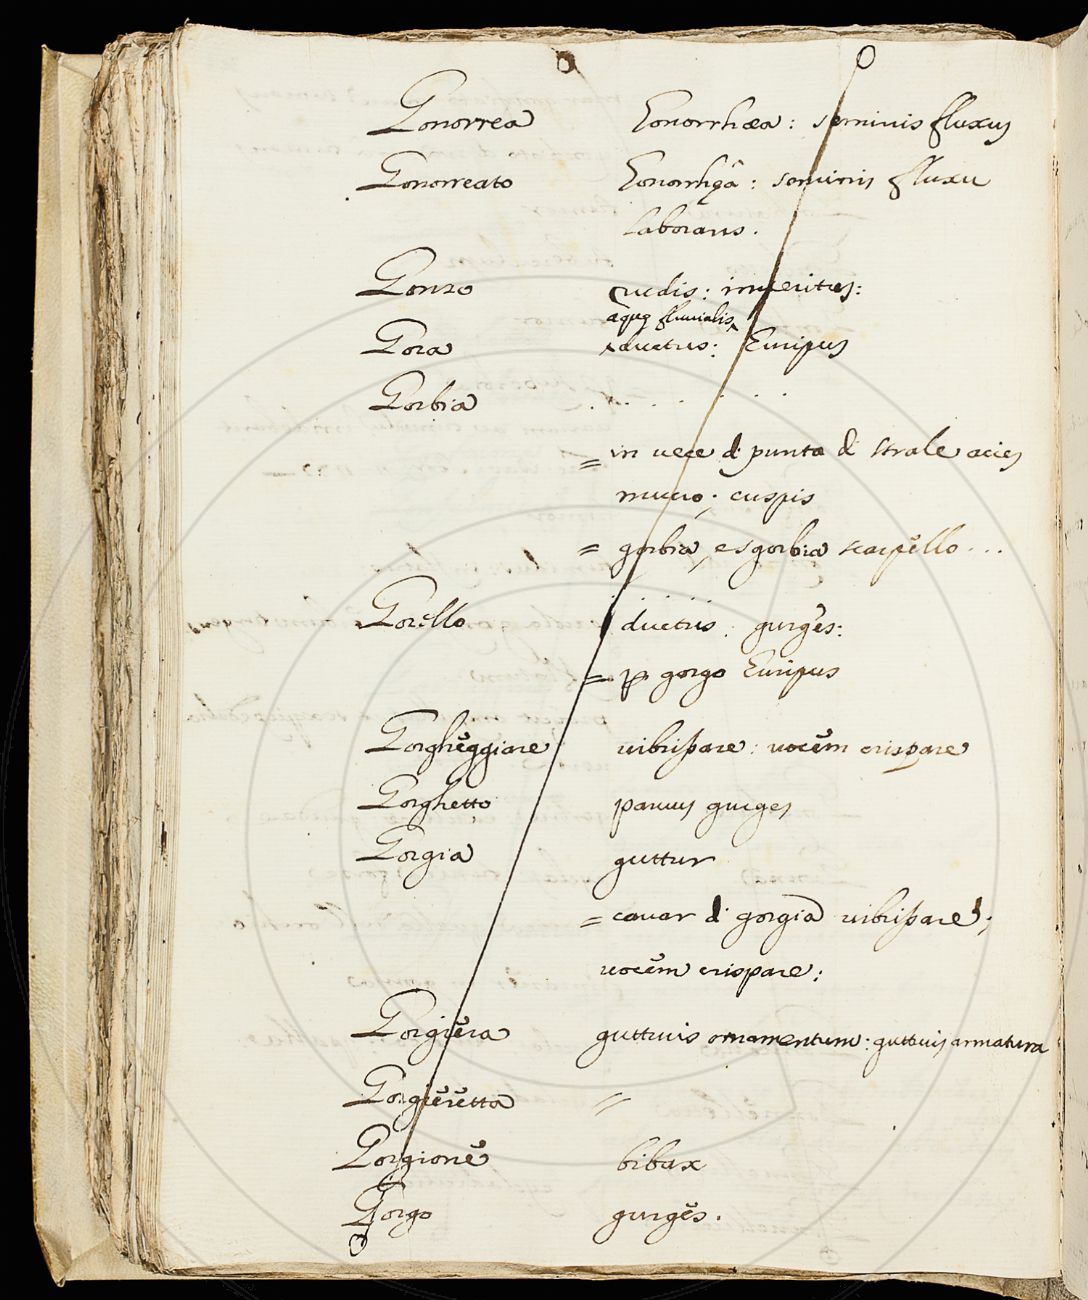 Gonorrea Gonorrhæa: seminis fluxus
Gonorreato Gonorrhęâ: seminis fluxu
laborans.
Gonzo rudis: imperitus:
aquę fluvialis
Gora ductus: Euripus
Gorbia . . . . . . .
= in vece di punta di strale acies
mucro; cuspis
= gorbia, e sgorbia scarpello ...
Gorello ductus: gurges:
= p gorgo Euripus
Gorgheggiare vibrissare: vocem crispare
Gorghetto parvus gurges
Gorgia guttur
= cavar di gorgia vibrissare;
vocem crispare:
Gorgiera gutturis ornamentum: gutturis armatura
Gorgieretta =
Gorgione bibax
Gorgo gurges.